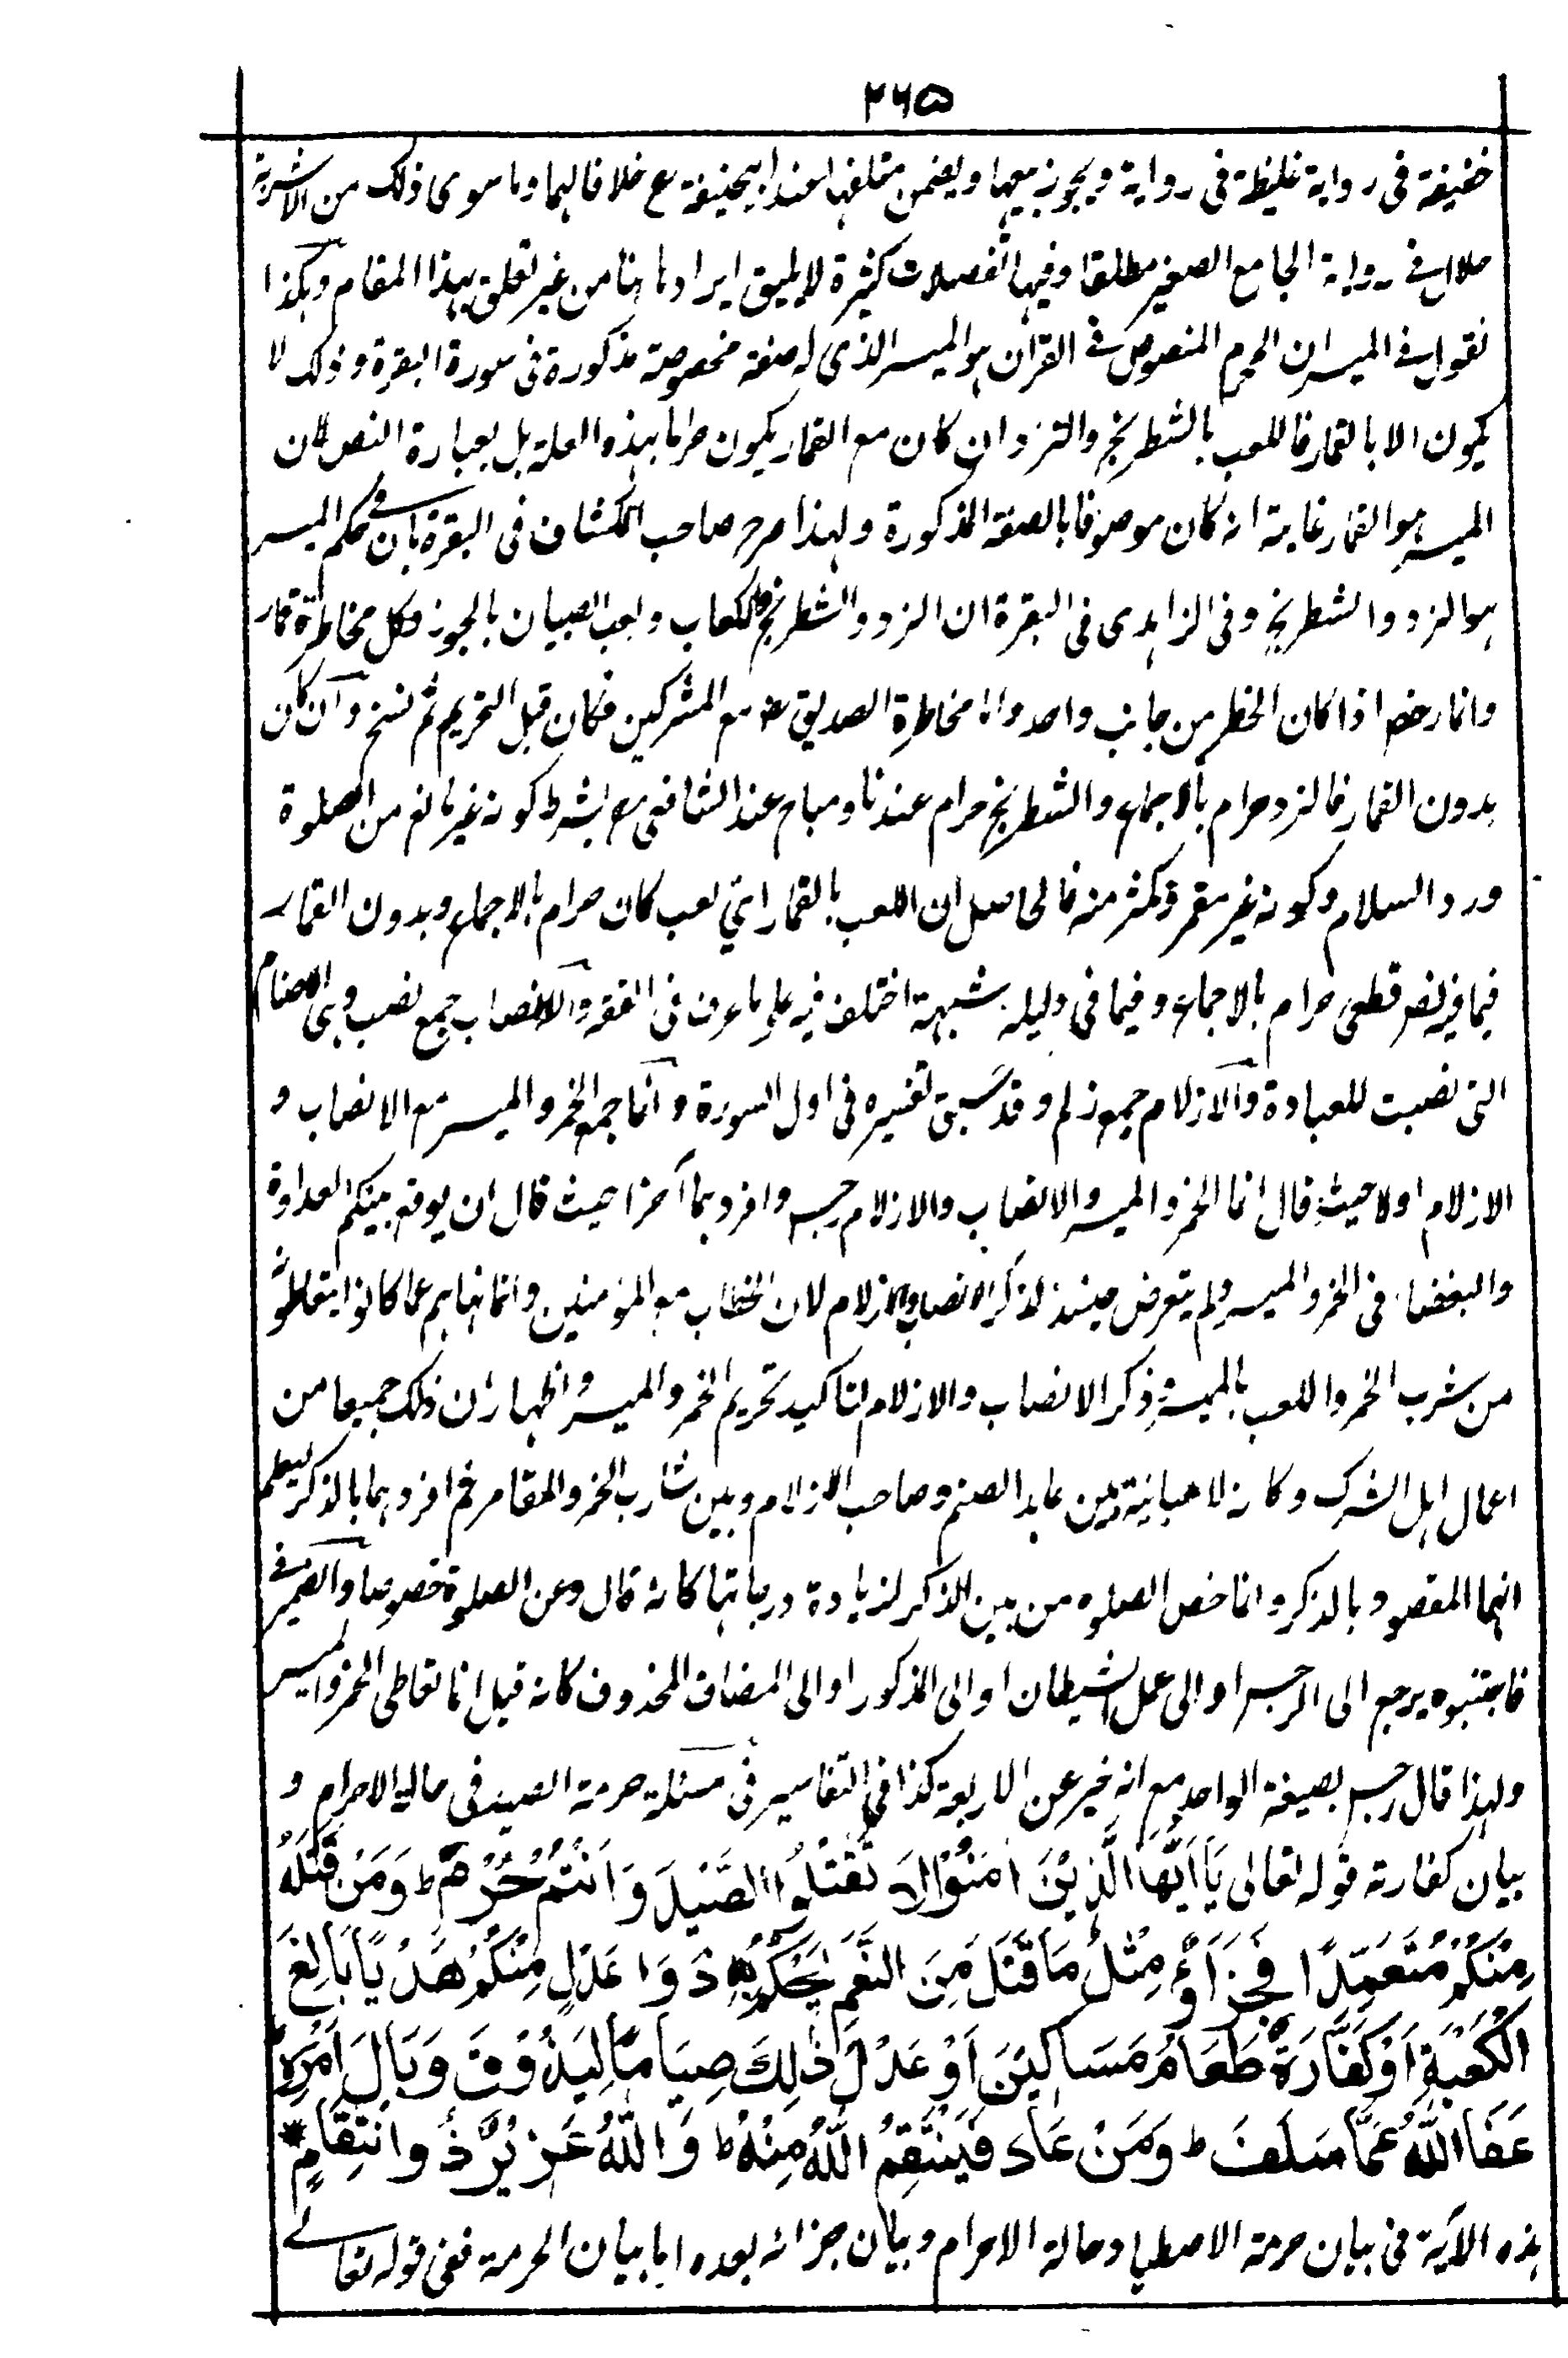 ٢٦٥
خفيفة فى رواية غليظة فى رواية ويجوز بيعها ويضمن متلفها عند ابيحنيفة رح خلافا لهما وما سوى ذلك من الاشربة
حلال فى رواية الجامع الصغير مطلقا وفيها تفصيلات كثيرة لا يليق ايرادها هنا من غير تعلق بهذا المقام وهكذا
نقول فى الميسر ان المحرم المنصوص فى القرآن هو الميسر الذى له صفة مخصوصة مذكورة فى سورة البقرة وذلك لا
يكون الا بالقمار فاللعب بالشطرنج والنرد ان كان مع القمار يكون حراما بهذه العلة بل بعبارة النص لان
الميسر هو القمار غاية انه كان موصوفا بالصفة المذكورة ولهذا صرح صاحب الكشاف فى البقرة بان فى حكم الميسر
هو النرد والشطرنج وفى الزاهدى فى البقرة ان النرد والشطرنج والكعاب ولعب الصبيان بالجوز وكل مخاطرة قمار
وانما رخص اذا كان الخطر من جانب واحد واما مخاطرة الصديق رض مع المشركين فكان قبل التحريم ثم نسخ وان كان
بدون القمار فالنرد حرام بالاجماع والشطرنج حرام عندنا ومباح عند الشافعى رح بشرط كونه غير مانع من الصلوة
ورد السلام وكونه غير مقر وكثر منه فالحاصل ان اللعب بالقمار اى لعب كان حرام بالاجماع وبدون القمار
فيما فيه نص قطعى حرام بالاجماع وفيما فى دليله شبهة اختلف فيه على ما عرف فى الفقه والانصاب جمع نصب وهى الاصنام
التى نصبت للعبادة والازلام جمع زلم وقد سبق تفسيره فى اول السورة وانما جمع الخمر والميسر مع الانصاب و
الازلام اولا حيث قال انما الخمر والميسر والانصاب والازلام رجس وافردهما آخرا حيث قال ان يوقع بينكم العداوة
والبغضاء فى الخمر والميسر ولم يتعرض حينئذ لذكر الانصاب والازلام لان الخطاب مع المؤمنين وانما نهاهم عما كانوا يتعاطونه
من شرب الخمر واللعب بالميسر وذكر الانصاب والازلام لتاكيد تحريم الخمر والميسر واظهار ان ذلك جميعا من
اعمال اهل الشرك وكانه لا مباينة بين عابد الصنم وصاحب الازلام وبين شارب الخمر والمقامر ثم افردهما بالذكر ليعلم
انهما المقصود بالذكر وانما خص الصلوه من بين الذكر لزيادة درجاتها كانه قال وعن الصلوة خصوصا والضمير فى
فاجتنبوه يرجع الى الرجس او الى عمل الشيطان او الى المذكور او الى المضاف المحذوف كانه قيل انما تعاطى الخمر والميسر
ولهذا قال رجس بصيغة الواحد مع انه خبر عن الاربعة كذا فى التفاسير فى مسئلة حرمة الصيد فى حالة الاحرام و
بيان كفارته قوله تعالى يَا اَيُّهَا الَّذِيْنَ اٰمَنُوْا لَا تَقْتُلُوا الصَّيْدَ وَ اَنْتُمْ حُرُمٌ ط وَمَنْ قَتَلَهٗ
مِنْكُمْ مُتَعَمِّدًا فَجَزَاءٌ مِثْلُ مَا قَتَلَ مِنَ النَّعَمِ يَحْكُمُ بِهٖ ذَوَا عَدْلٍ مِنْكُمْ هَدْيًا بَالِغَ
الْكَعْبَةِ اَوْ كَفَّارَةٌ طَعَامُ مَسَاكِيْنَ اَوْ عَدْلُ ذٰلِكَ صِيَامًا لِيَذُوْقَ وَبَالَ اَمْرِهٖ ط
عَفَا اللّٰهُ عَمَّا سَلَفَ ط وَمَنْ عَادَ فَيَنْتَقِمُ اللّٰهُ مِنْهُ ط وَ اللّٰهُ عَزِيْزٌ ذُو انْتِقَامٍ *
هذه الآية فى بيان حرمة الاصطياد حالة الاحرام وبيان جزائه بعده اما بيان الحرمة ففى قوله تعالى